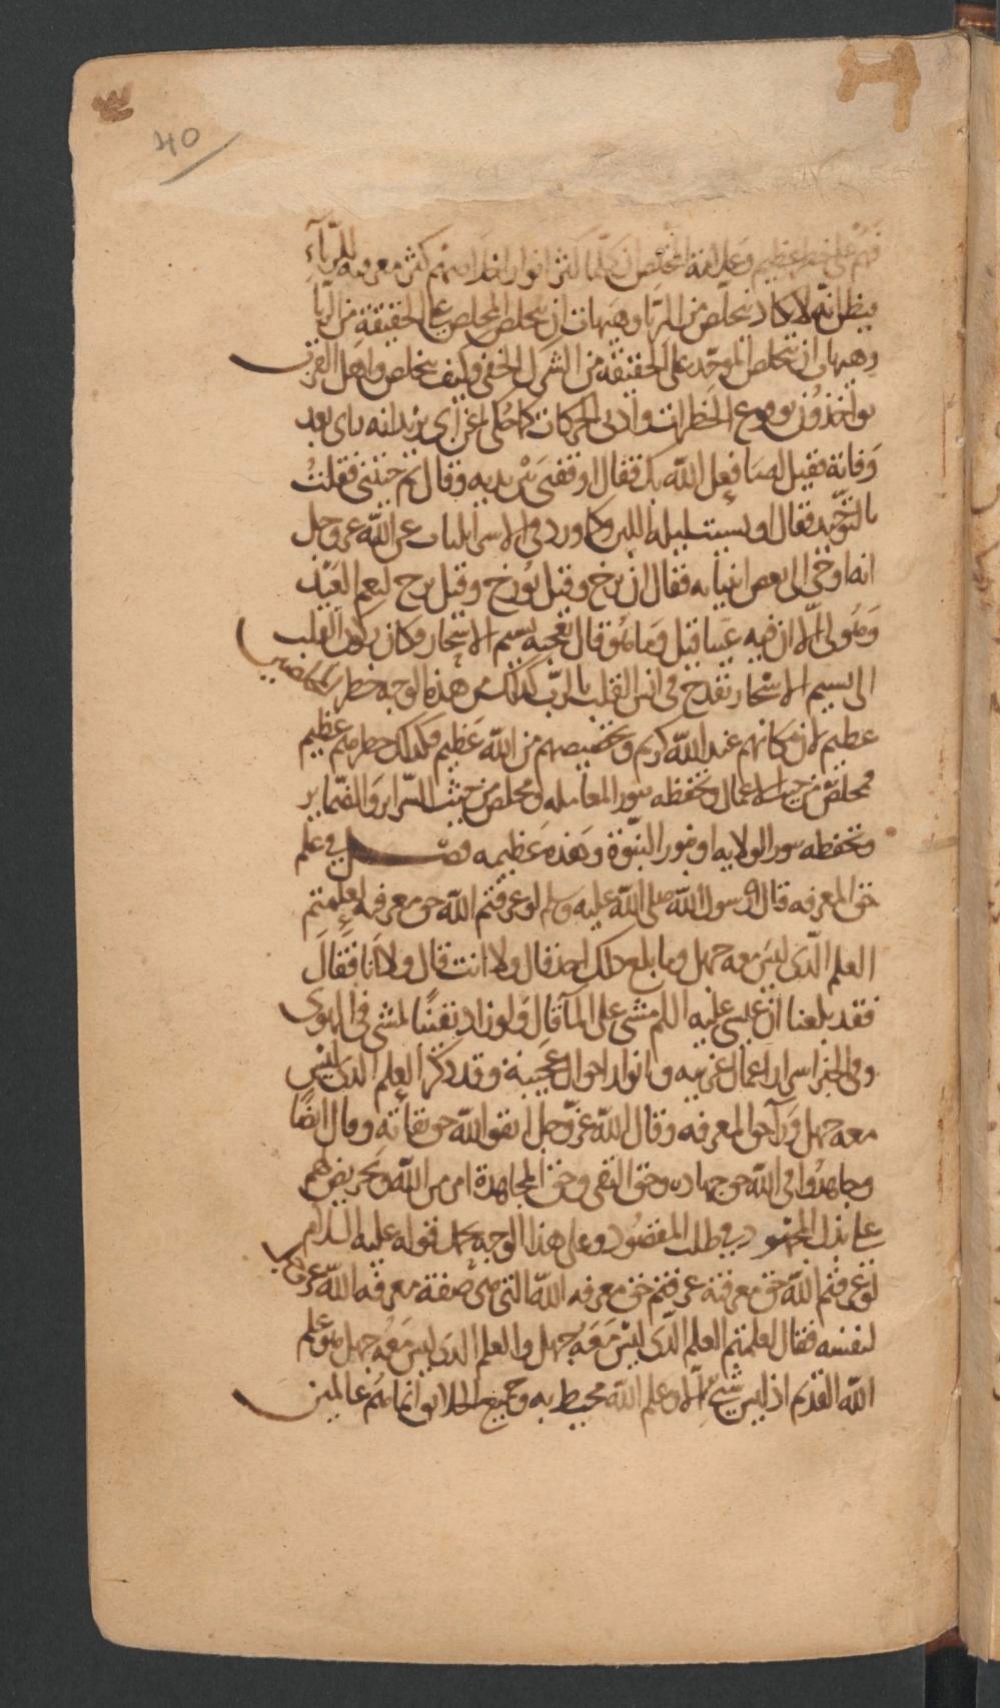 40
فهم على خطر عظيم وعلامة المخلص ان كلما كثر انوار اخلاصهم كثر معرفته للرياء
فيظن انه لا يكاد يتخلص من الريا وهيهات ان يتخلص المخلص على الحقيقة من الريا
وهيهات ان يتخلص الموحد على الحقيقة من الشرك الخفي وكيف يتخلص واهل القرب
يواخذون بوقوع الخطرات وادنى الحركات كما حكي عن ابي يزيد انه راى بعد
وفاته فقيل له ما فعل الله بك فقال اوقفني بين يديه وقال بم جئتني فقلت
بالتوحيد فقال او نسيت ليلة اللبن وكما ورد في الاسرائليات عن الله عز وجل
انه اوحى الى بعض انبيائه فقال ان برخ وقيل بورخ وقيل برح لنعم العبد
وهو لي الا ان فيه عيبا قيل وما هو قال تعجبه نسيم الاسحار وكان ركون القلب
الى نسيم الاسحار تقدح في انس القلب بالرب كذلك من هذه الوجه خطر المخلصين
عظيم لان مكانهم عند الله كريم وتخصيصهم من الله عظيم فكذلك خطرهم عظيم
فمخلص من حيث الاعمال وتحفظه بنور المعامله ومخلص من حيث السراير والضماير
وتحفظه بنور الولايه او بنور النبوة وهذه عظيمه فصل في علم
حق المعرفه قال رسول الله صلى الله عليه وسلم لو عرفتم الله حق معرفته لعلمتم
العلم الذي ليس معه جهل وما بلغ ذلك احد قال ولا انت قال ولا انا فقال
فقد بلغنا ان عيسى عليه السلم مشى على الماء قال ولو زاد يقينا لمشى في الهوى
وفي الخبر اسرار اعمال غريبه وانوار احوال عجيبة وقد ذكر العلم الذي ليس
معه جهل وراء حق المعرفه وقال الله عز وجل اتقوا الله حق تقاته وقال ايضا
وجاهدوا في الله حق جهاده وحق التقى وحق المجاهدة امر من الله وتحريض لهم
على بذل المجهود في طلب المقصود وعلى هذا الوجه يحمل قوله عليه السلام
لو عرفتم الله حق معرفته عرفتم حق معرفه الله التي هي صفة معرفه الله عز وجل
لنفسه فقال لعلمتم العلم الذي ليس معه جهل والعلم الذي ليس معه جهل هو علم
الله القديم اذ ليس شيء الا وعلم الله محيط به وجميع الخلايق انما هم عالمين